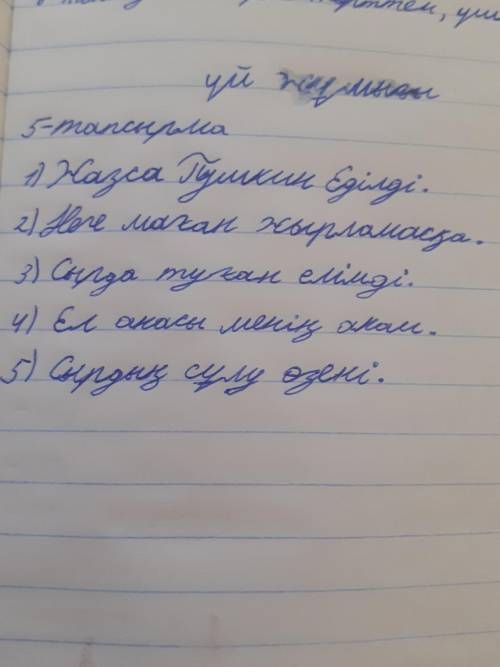 үй жұмысы
5-тапсырма
1) Жазса Пушкин Еділді.
2) Неге маған жырламасқа.
3) Сырда туған елімді.
4) Ел анасы менің анам.
5) Сырдың сұлу өзені.